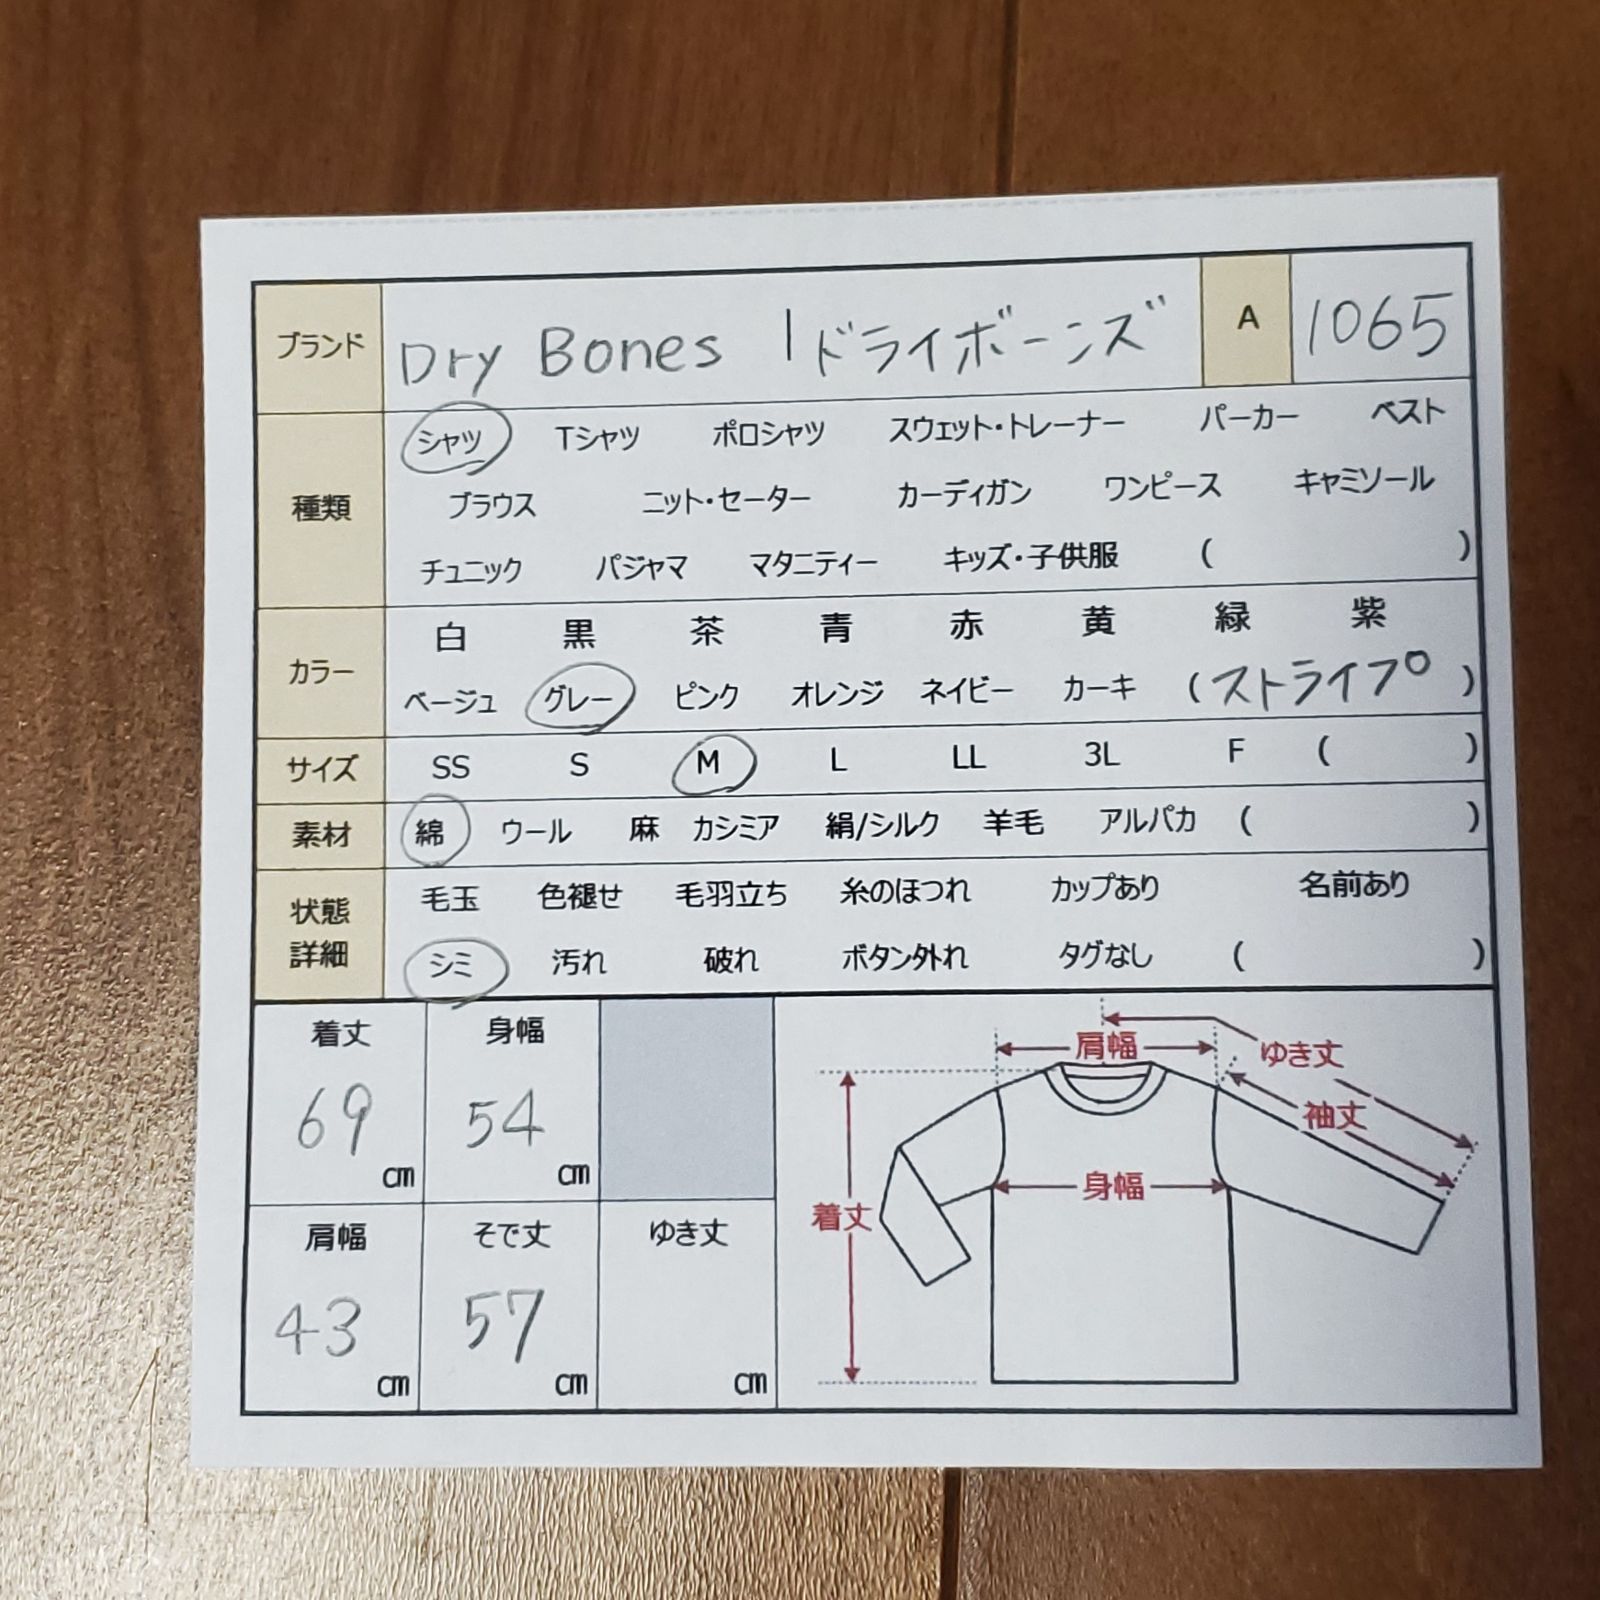 ブランド Dry Bones | ドライボーンズ A 1065
シャツ Tシャツ ポロシャツ スウェット・トレーナー パーカー ベスト
種類 ブラウス ニット・セーター カーディガン ワンピース キャミソール
チュニック パジャマ マタニティー キッズ・子供服 ( )
白 黒 茶 青 赤 黄 緑 紫
カラー
ベージュ グレー ピンク オレンジ ネイビー カーキ (ストライプ)
サイズ SS S M L LL 3L F ( )
素材 綿 ウール 麻 カシミア 絹/シルク 羊毛 アルパカ ( )
状態 毛玉 色褪せ 毛羽立ち 糸のほつれ カップあり 名前あり
詳細 シミ 汚れ 破れ ボタン外れ タグなし ( )
着丈 身幅
69 cm 54 cm
肩幅 そで丈 ゆき丈
43 cm 57 cm cm
肩幅 ゆき丈
袖丈
身幅
着丈